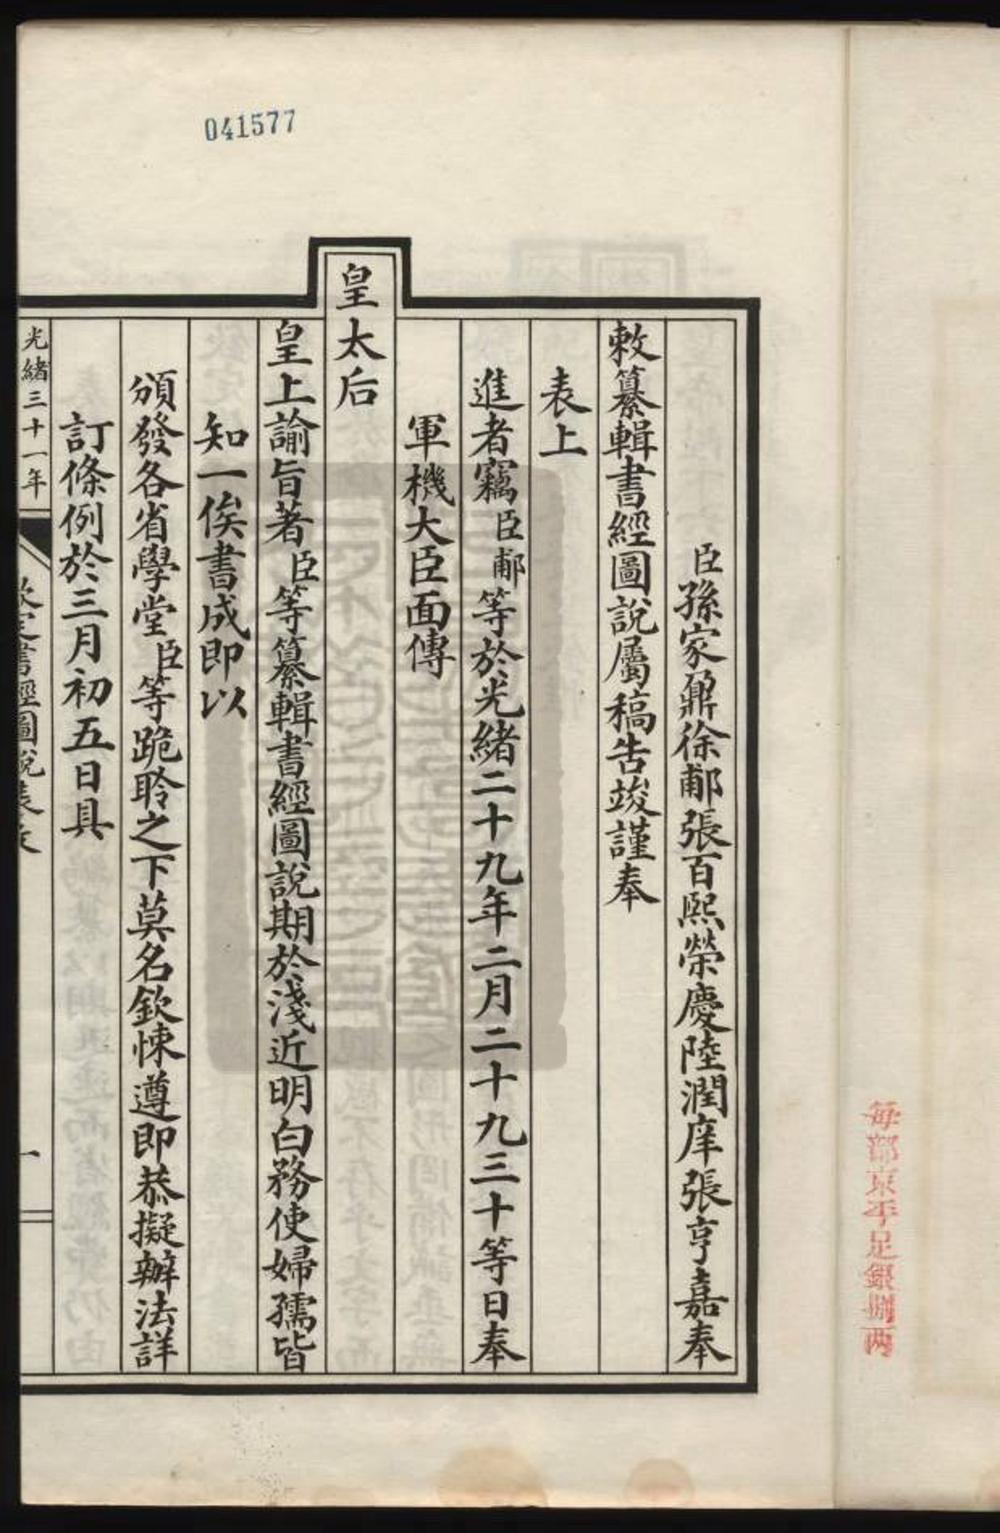 041577
每部京平足銀捌两
臣孫家鼐徐郙張百熙榮慶陸潤庠張亨嘉奉
敕纂輯書經圖說屬稿告竣謹奉
表上
進者竊臣郙等於光緒二十九年二月二十九三十等日奉
軍機大臣面傳
皇太后
皇上諭旨著臣等纂輯書經圖說期於淺近明白務使婦孺皆
知一俟書成即以
頒發各省學堂臣等跪聆之下莫名欽悚遵即恭擬辦法詳
訂條例於三月初五日具
光緒三十一年
書經圖說表文
一